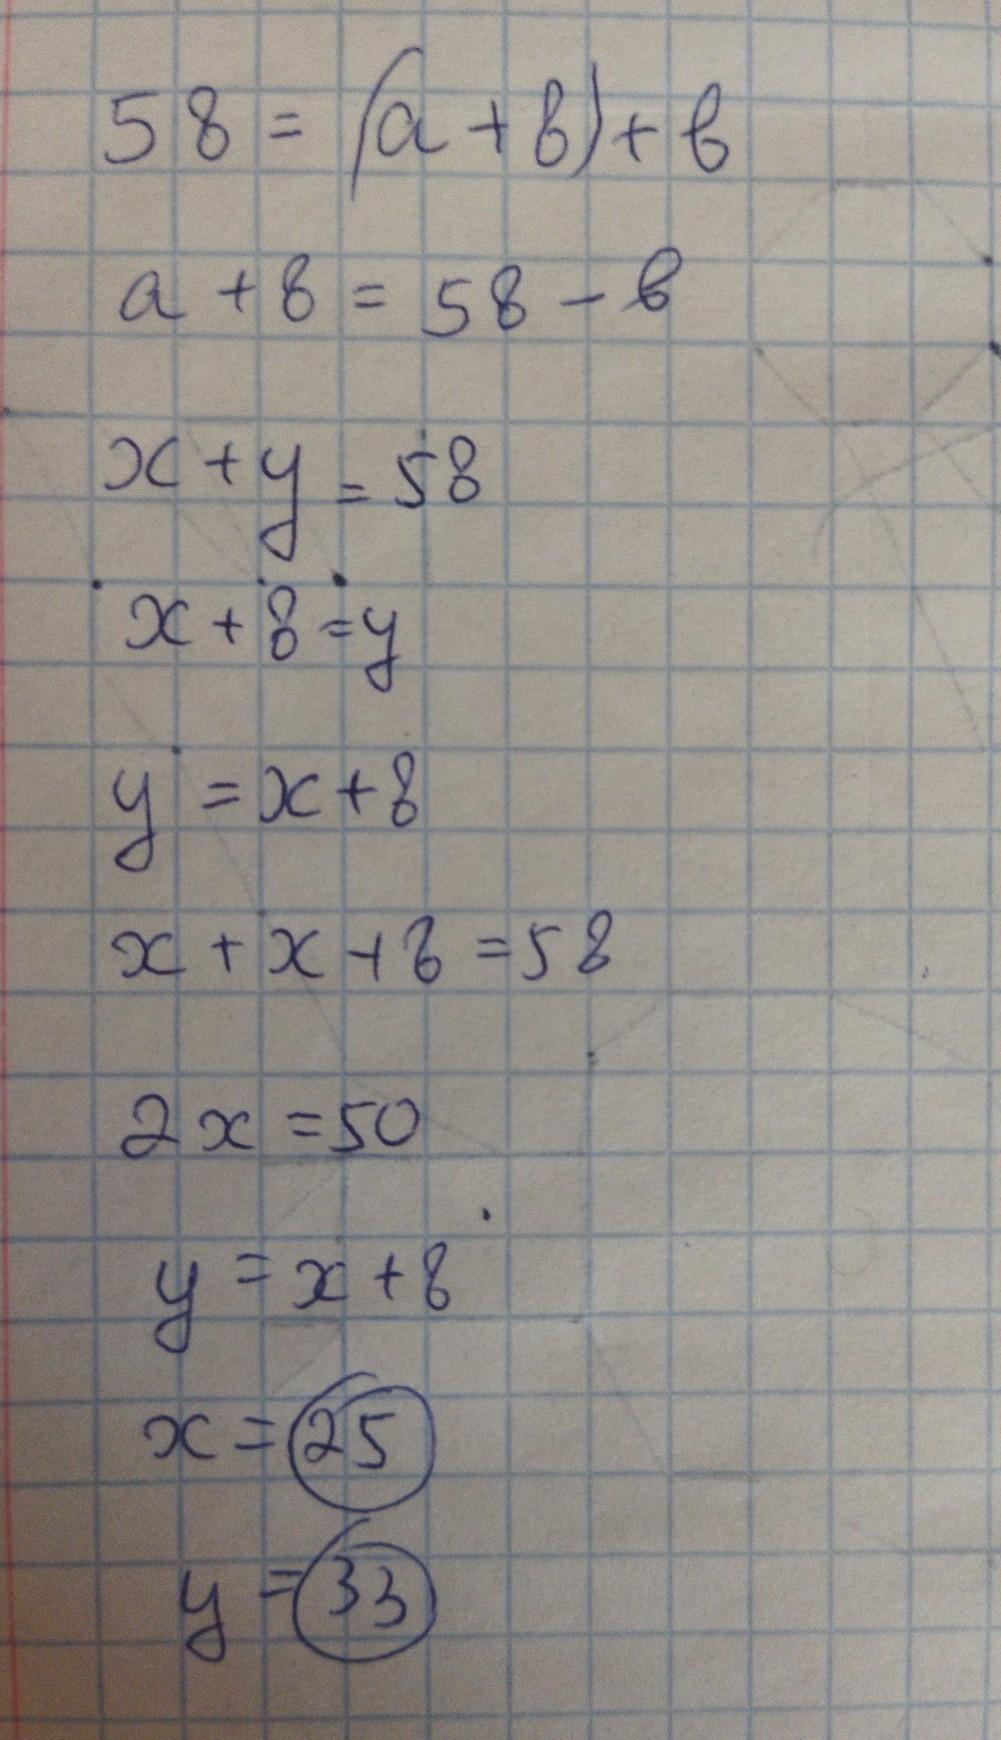 58 = (a + b) + b
a + 8 = 58 - b
x + y = 58
x + 8 = y
y = x + 8
x + x + 8 = 58
2x = 50
y = x + 8
x = 25
y = 33